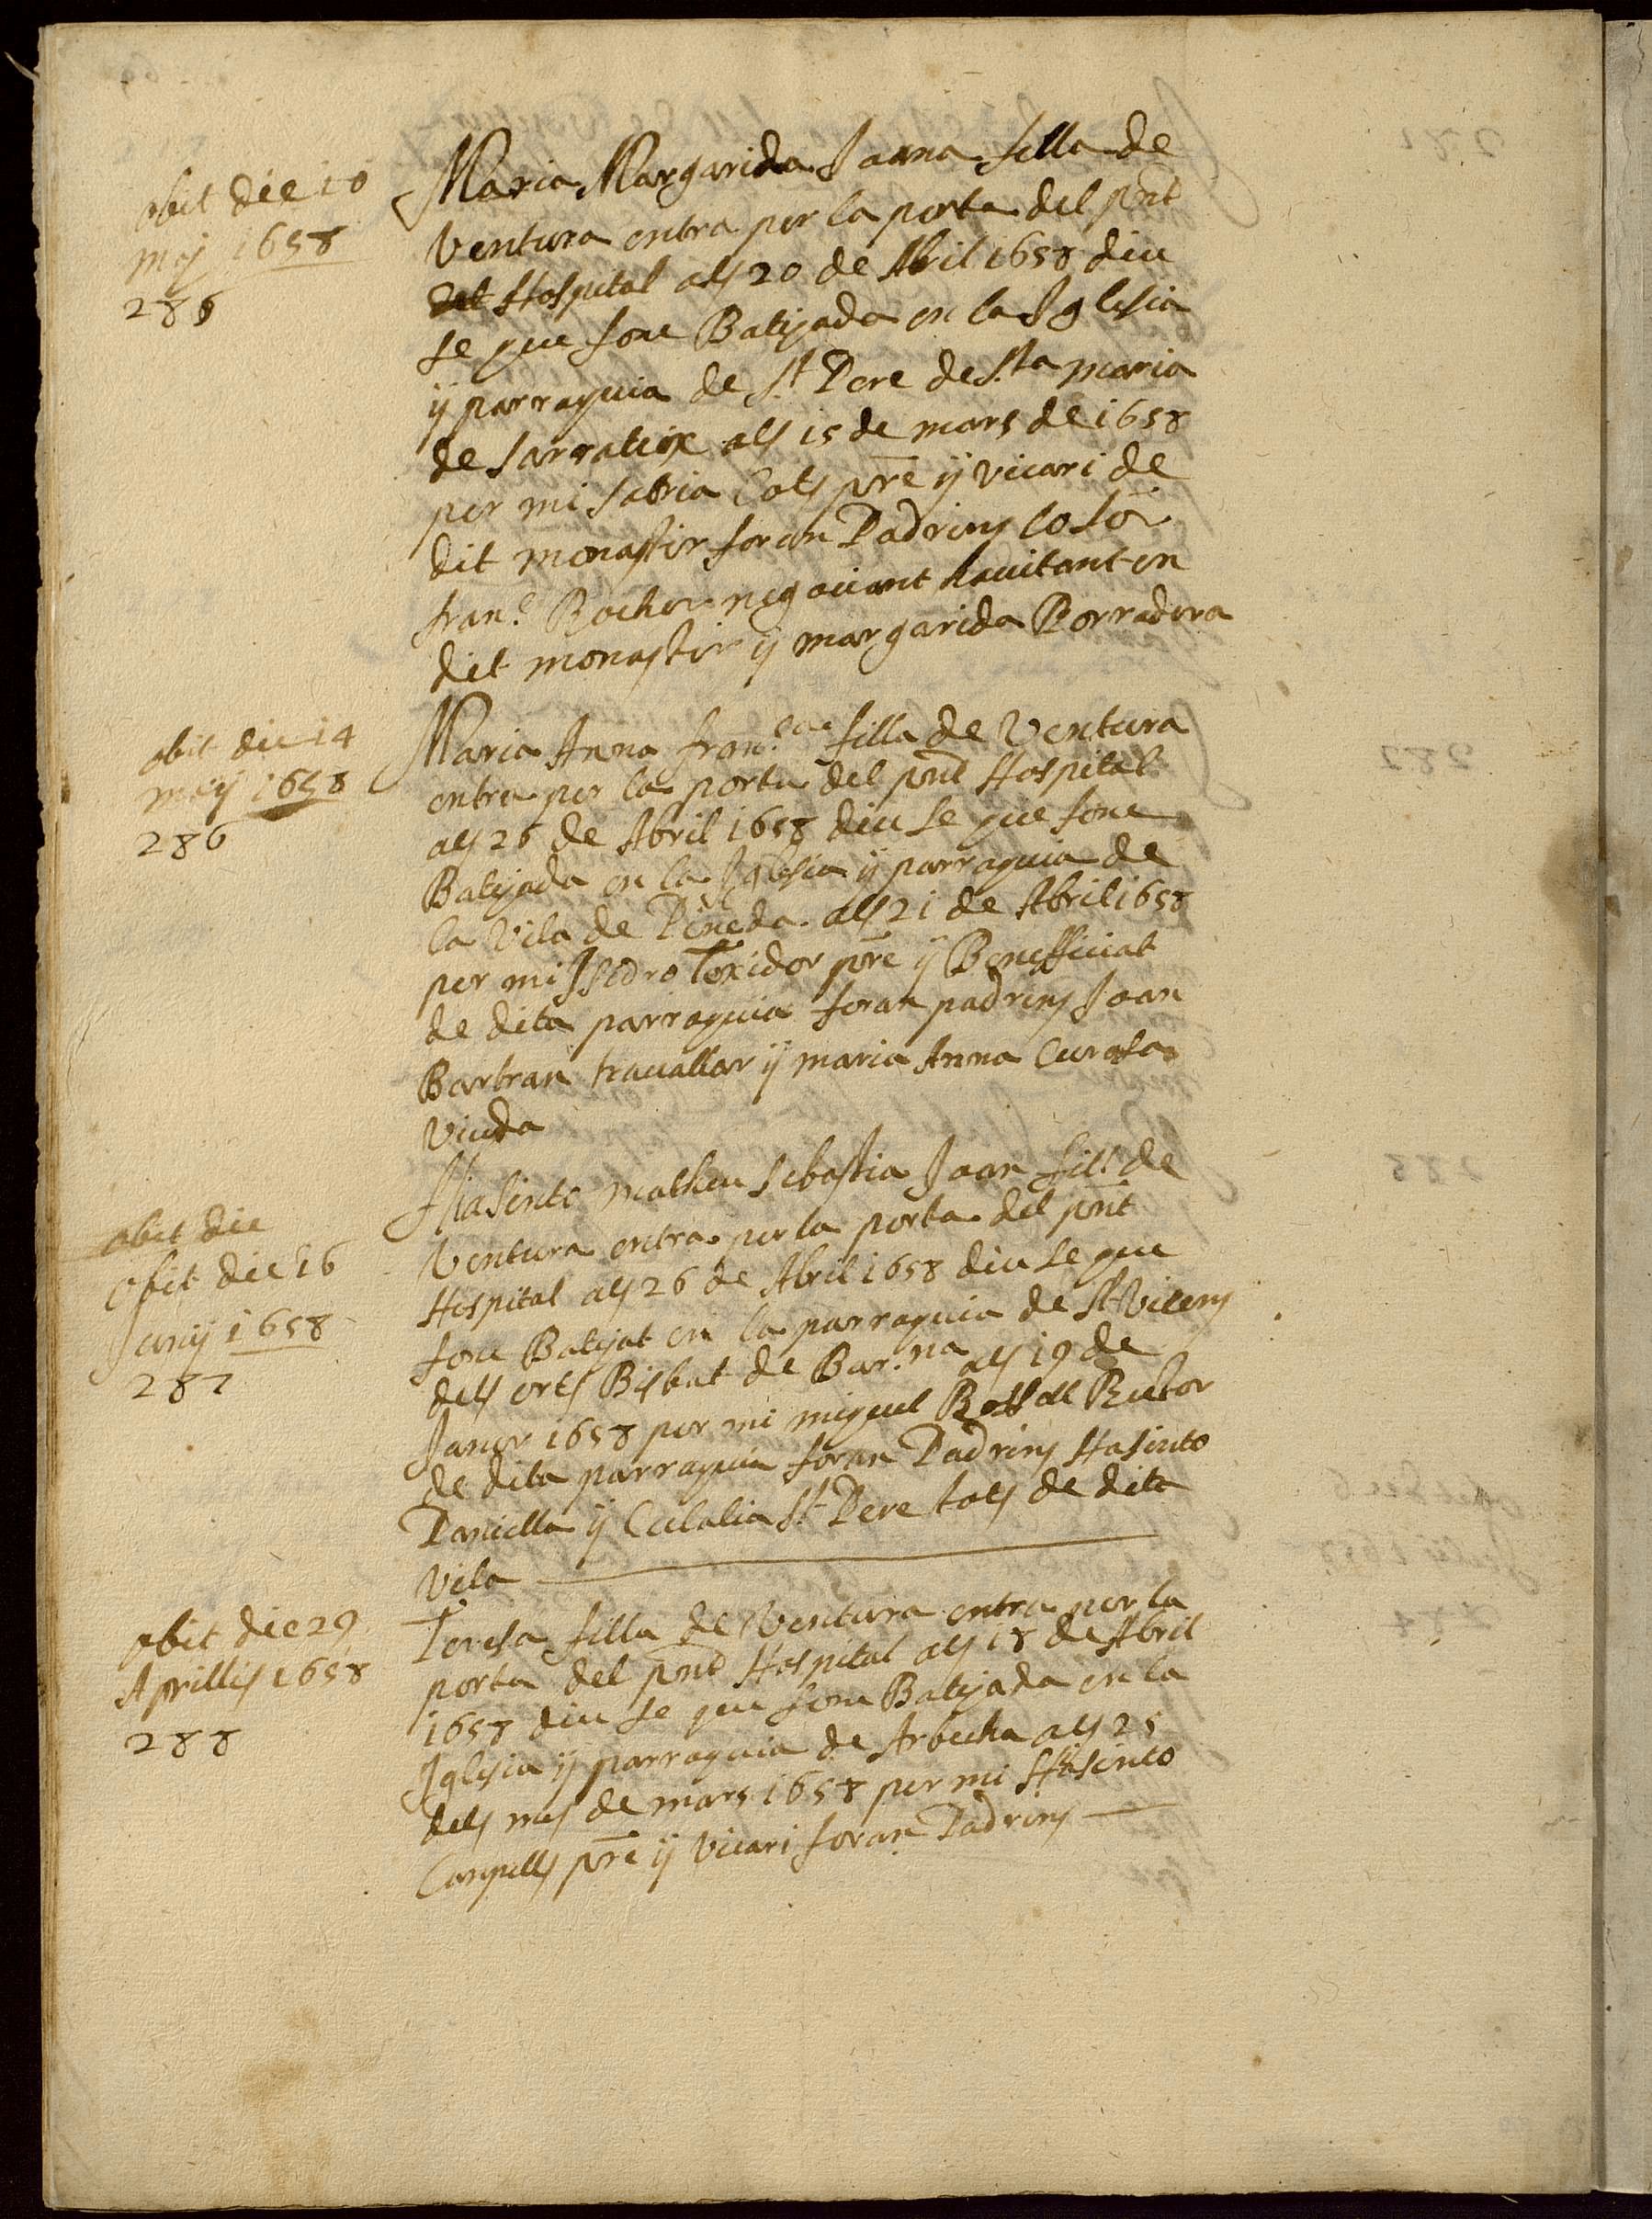 obit die 10
maj 1658
285
Maria Margarida Joana filla de
Ventura entra per la porta del pnt
Hospital als 20 de Abril 1658 diu
se que fonc Batejada en la Iglesia
y parraquia de St Pere de Sta maria
de Sarrateix als 15 de mars de 1658
per mi Cots pre y vicari de
dit monastir foran Padrins lo Sor
franc. Bocher negociant havitant en
dit monastir y margarida Borradora
obit die 14
maij 1658
286
Maria Anna franca filla de Ventura
entra per la porta del pnt Hospital
als 26 de Abril 1658 diu se que fonc
Batejada en la Iglesia y parraquia de
la Vila de Pineda als 21 de Abril 1658
per mi Isidro Texidor pre y Benefficiat
de dita parraquia foran padrins Joan
Bartran travallar y maria Anna
Viuda
obit die
obit die 16
Junij 1658
287
Hiasinto matheu Sebastia Joan fill de
Ventura entra per la porta del pnt
Hospital als 26 de Abril 1658 diu se que
fonc Batejat en la parraquia de St Vicens
dels orts Bisbat de Bar.na als 19 de
Janer 1658 per mi miquel Rector
de dita parraquia foran Padrins Hasinto
Paniella y Eulalia St Pere tots de dita
Vila
obit die 29
Aprillis 1658
288
Teresa filla de Ventura entra per la
porta del pnt Hospital als 18 de Abril
1658 diu se que fonc Batejada en la
Iglesia y parraquia de Arbecha als 25
dels mes de mars 1658 per mi Hiasinto
Canpells pre y vicari foran Padrins